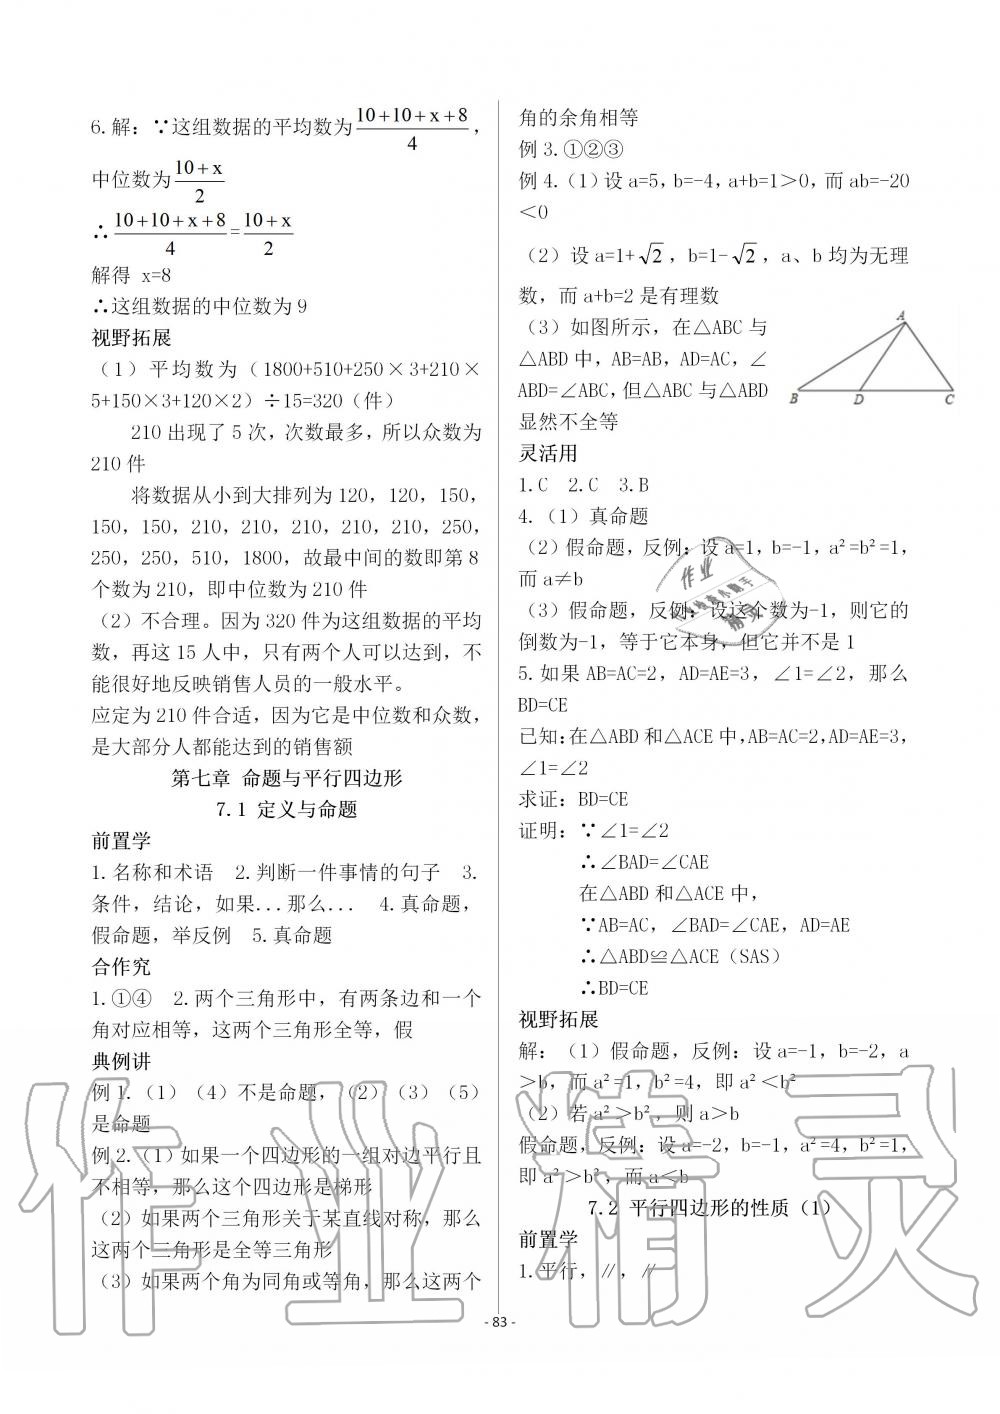 6.解：∵这组数据的平均数为(10+10+x+8)/4，
中位数为(10+x)/2
∴(10+10+x+8)/4=(10+x)/2
解得 x=8
∴这组数据的中位数为9
视野拓展
（1）平均数为（1800+510+250×3+210×
5+150×3+120×2）÷15=320（件）
210出现了5次，次数最多，所以众数为
210件
将数据从小到大排列为120，120，150，
150，150，210，210，210，210，210，250，
250，250，510，1800，故最中间的数即第8
个数为210，即中位数为210件
（2）不合理。因为320件为这组数据的平均
数，再这15人中，只有两个人可以达到，不
能很好地反映销售人员的一般水平。
应定为210件合适，因为它是中位数和众数，
是大部分人都能达到的销售额
第七章 命题与平行四边形
7.1 定义与命题
前置学
1.名称和术语 2.判断一件事情的句子 3.
条件，结论，如果...那么... 4.真命题，
假命题，举反例 5.真命题
合作究
1.①④ 2.两个三角形中，有两条边和一个
角对应相等，这两个三角形全等，假
典例讲
例1.（1）（4）不是命题，（2）（3）（5）
是命题
例2.（1）如果一个四边形的一组对边平行且
不相等，那么这个四边形是梯形
（2）如果两个三角形关于某直线对称，那么
这两个三角形是全等三角形
（3）如果两个角为同角或等角，那么这两个
角的余角相等
例3.①②③
例4.（1）设a=5，b=-4，a+b=1＞0，而ab=-20
＜0
（2）设a=1+√2，b=1-√2，a、b均为无理
数，而a+b=2是有理数
（3）如图所示，在△ABC与
△ABD中，AB=AB，AD=AC，∠
ABD=∠ABC，但△ABC与△ABD
显然不全等
A
B D C
灵活用
1.C 2.C 3.B
4.（1）真命题
（2）假命题，反例：设a=1，b=-1，a²=b²=1，
而a≠b
（3）假命题，反例：设这个数为-1，则它的
倒数为-1，等于它本身，但它并不是1
5.如果AB=AC=2，AD=AE=3，∠1=∠2，那么
BD=CE
已知：在△ABD和△ACE中，AB=AC=2，AD=AE=3，
∠1=∠2
求证：BD=CE
证明：∵∠1=∠2
∴∠BAD=∠CAE
在△ABD和△ACE中，
∵AB=AC，∠BAD=∠CAE，AD=AE
∴△ABD≌△ACE（SAS）
∴BD=CE
视野拓展
解：（1）假命题，反例：设a=-1，b=-2，a
＞b，而a²=1，b²=4，即a²＜b²
（2）若a²＞b²，则a＞b
假命题，反例：设a=-2，b=-1，a²=4，b²=1，
即a²＞b²，而a＜b
7.2 平行四边形的性质（1）
前置学
1.平行，∥，∥
- 83 -
作业精灵